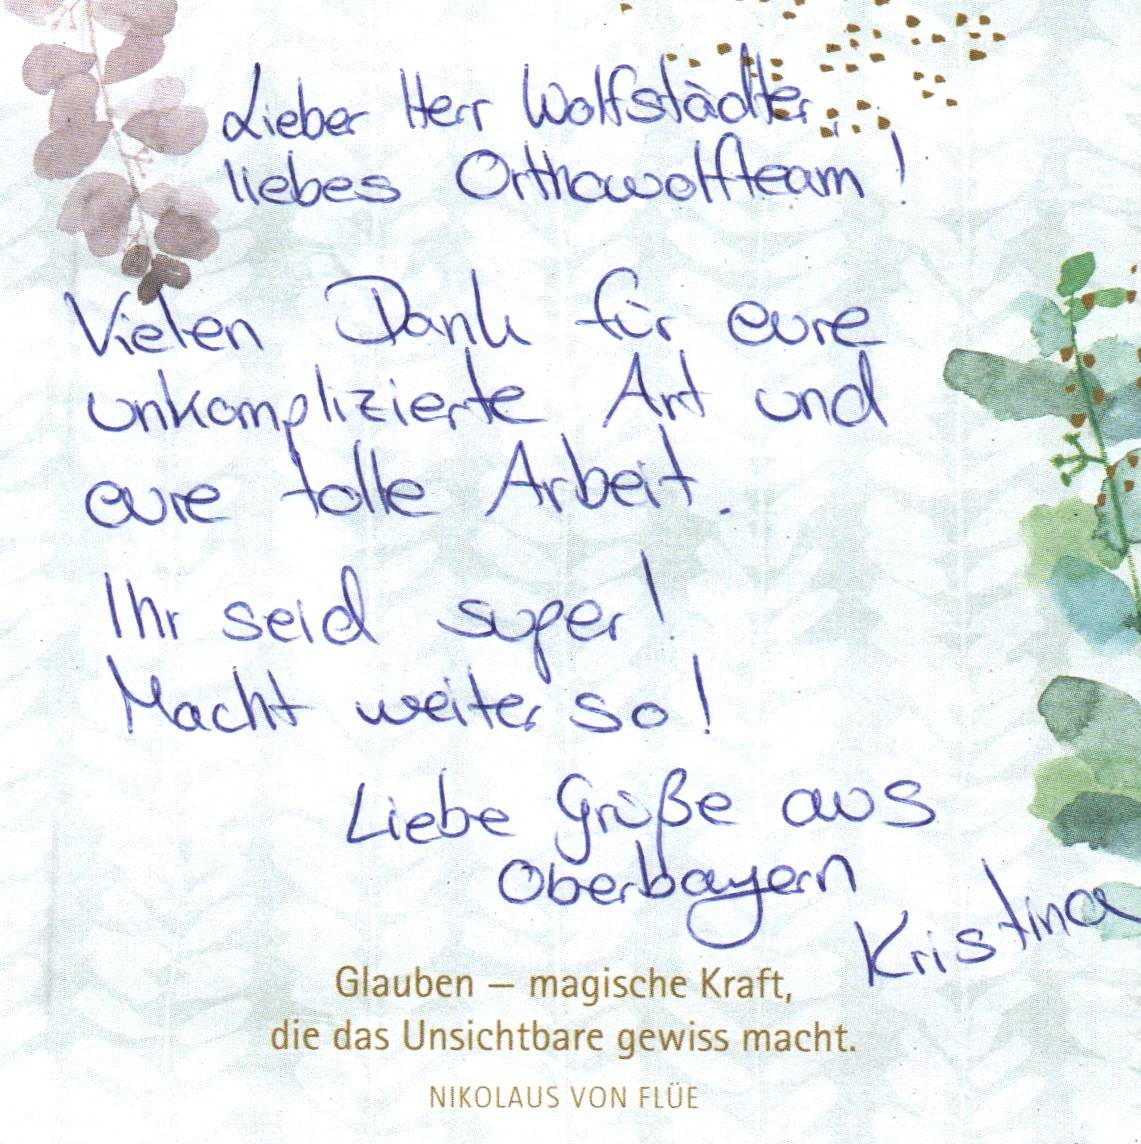 Lieber Herr Wolfstädter,
liebes Orthowolfteam!
Vielen Dank für eure
unkomplizierte Art und
eure tolle Arbeit.
Ihr seid super!
Macht weiter so!
Liebe Grüße aus
Oberbayern
Kristina
Glauben – magische Kraft,
die das Unsichtbare gewiss macht.
NIKOLAUS VON FLÜE